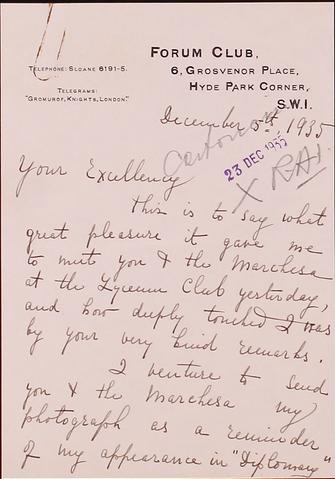 FORUM CLUB,
TELEPHONE: SLOANE 6191-5.
6, GROSVENOR PLACE,
TELEGRAMS:
HYDE PARK CORNER,
"GROMUROY, KNIGHTS, LONDON."
S.W.1.
December 5th, 1935
23 DEC 1935
Your Excellency
This is to say what
great pleasure it gave me
to meet you & the Marchesa
at the Lyceum Club yesterday,
and how deeply touched I was
by your very kind remarks.
I venture to send
you & the Marchesa my
photograph as a reminder
of my appearance in "Diplomacy"